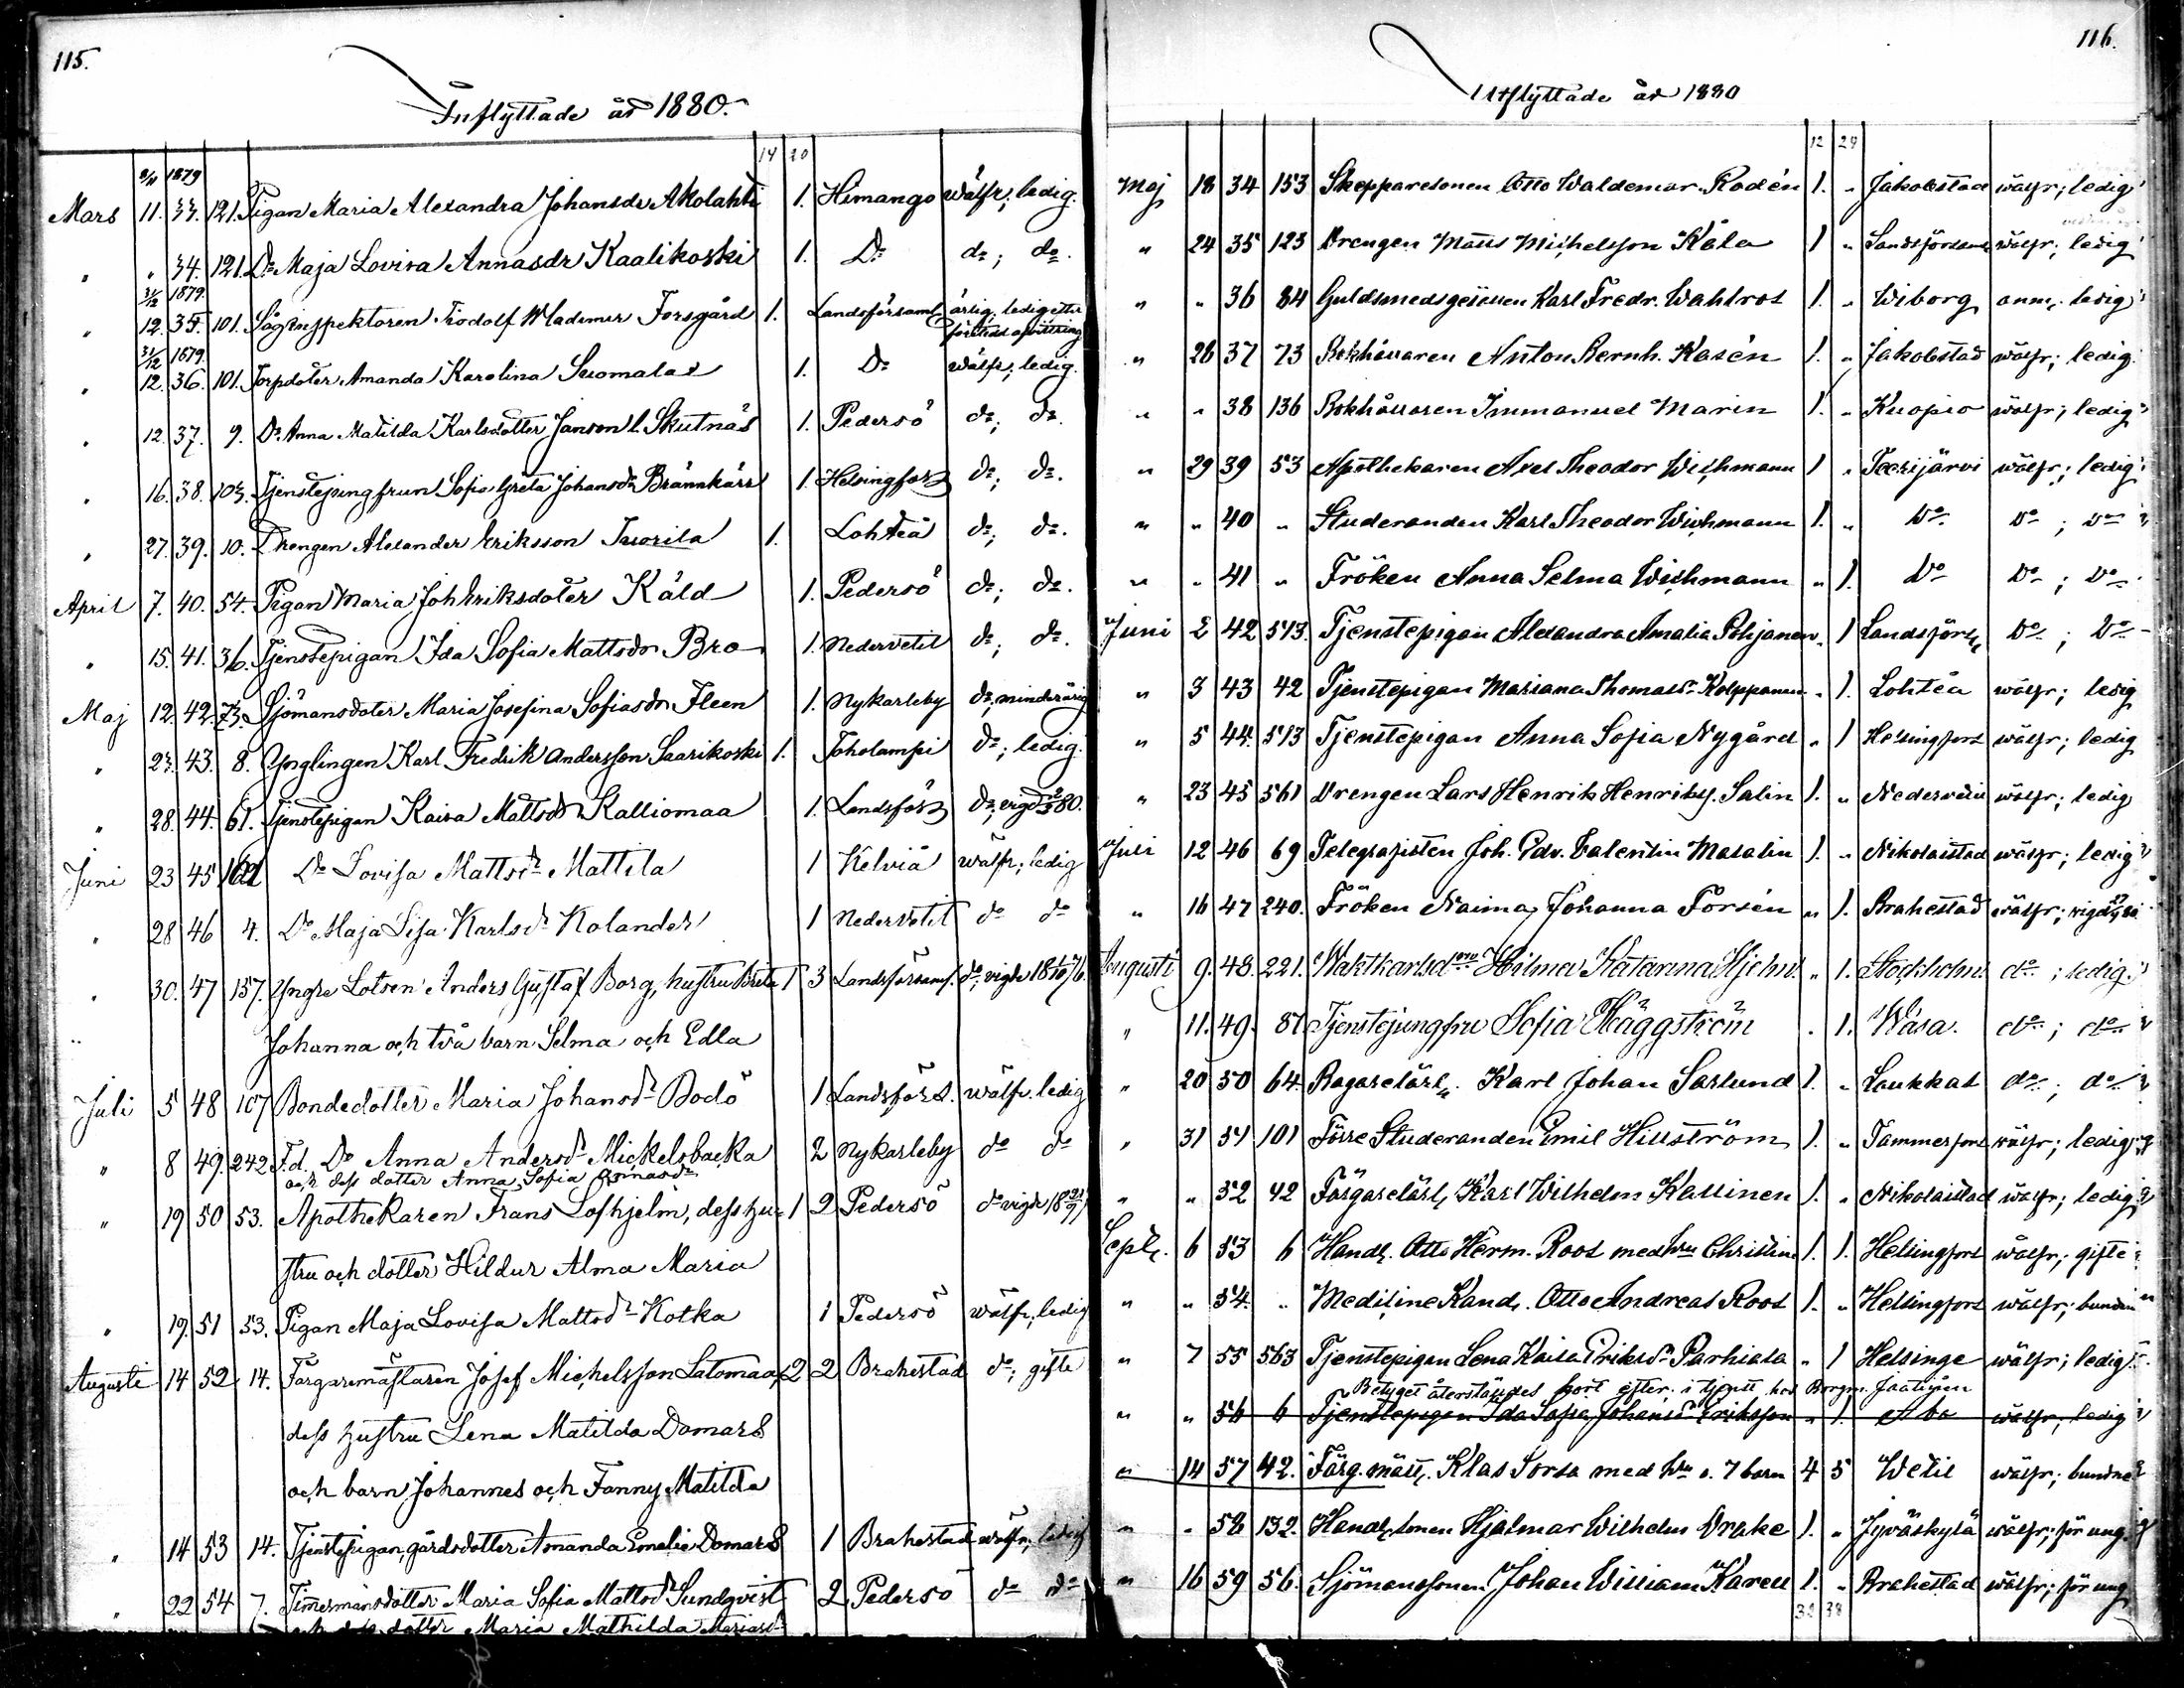 115.
Inflyttade år 1880.
14 20
8/11 1879
Mars 11. 33. 121. Pigan Maria Alexandra Johansdr Akolahti 1. Himango wälfr; ledig.
" " 34. 121. Do Maja Lovisa Annasdr Kaalikoski 1. Do do; do.
31/12 1879.
" 12. 35. 101. Såginspektoren Frodolf Wladimir Forsgård 1. Landsförsaml ärlig; ledig efter
förlorad afvittring
31/12 1879.
" 12. 36. 101. Torpdoter Amanda Karolina Suomalas 1. Do wälfr; ledig.
" 12. 37. 9. Do Anna Matilda Karlsdotter Janson l. Skutnäs 1. Pedersö do; do.
" 16. 38. 103. Tjenstejungfrun Sofia Greta Johansdr Brännkärr 1. Helsingfors do; do.
" 27. 39. 10. Drengen Alexander Eriksson Tuorila 1. Lohteå do; do.
April 7. 40. 54. Pigan Maria Joh Eriksdoter Kåld 1. Pedersö do; do.
" 15. 41. 36. Tjenstepigan Ida Sofia Mattsdr Bro 1. Nedervetil do; do.
Maj 12. 42. 73. Sjömansdoter Maria Josefina Sofiasdr Fleen 1. Nykarleby do; minderårig
" 23. 43. 8. Ynglingen Karl Fredrik Andersson Saarikoski 1. Toholampi do; ledig.
" 28. 44. 61. Tjenstepigan Kaisa Mattsdr Kalliomaa 1. Landsförs do;
Juni 23 45 Do Lovisa Mattsdr Mattila 1 Kelviå wälfr; ledig
" 28 46 4. Do Maja Lisa Karlsdr Kolander 1 Nedervetil do do
" 30. 47 157. Yngre Lotsen Anders Gustaf Borg, hustru Brita 1 3 Landsförsaml. do; vigde 18 1/10 76.
Johanna och två barn Selma och Edla
Juli 5 48 107 Bondedotter Maria Johansdr Bodö 1 Landsförs. wälfr. ledig
" 8 49. 242 F.d. Do Anna Andersdr Mickelsbacka 2 Nykarleby do do
och dess dotter Anna Sofia Annasdr
" 19 50 53. Apothekaren Frans Lofhjelm, dess hu- 1 2 Pedersö do vigde
stru och dotter Hildur Alma Maria
" 19. 51 53. Pigan Maja Lovisa Mattsdr Kotka 1 Pedersö wälfr; ledig
Augusti 14 52 14. Färgaremästaren Josef Michelsson Latomaa, 2 2 Brahestad do; gifte
dess hustru Lena Matilda Domars
och barn Johannes och Fanny Matilda
" 14 53 14. Tjenstepigan, gårdsdotter Amanda Emelie Domars 1 Brahestad wälfr; ledig
" 22 54 7. Timermansdotter Maria Sofia Mattsdr Sundqvist 2 Pedersö do do
och dess dotter Maria Mathilda Mariasdr
116.
Utflyttade år 1880
12 29
Maj 18 34 153 Skepparesonen Otto Waldemar Rodén 1. " Jakobstad wälfr; ledig
" 24 35 123 Drengen Matts Michelsson Kåla 1 " Landsförsaml wälfr; ledig
" " 36 84 Guldsmedsgesellen Karl Fredr. Wahlros 1. " Wiborg anm. ledig
" 26 37 73 Bokhållaren Anton Bernh. Kasén 1. " Jakobstad wälfr; ledig.
" " 38 136 Bokhållaren Immanuel Marin 1. " Kuopio wälfr; ledig
" 29 39 53 Apothekaren Axel Theodor Wichmann 1 " Teerijärvi wälfr; ledig
" " 40 " Studeranden Karl Theodor Wichmann 1. " Do Do; Do
" " 41 " Fröken Anna Selma Wichmann " 1. Do Do; Do
Juni 2 42 543. Tjenstepigan Alexandra Amalia Pohjanen " 1 Landsförs. Do; Do
" 3 43 42 Tjenstepigan Mariana Thomasdr Kolppanen " 1. Lohteå wälfr; ledig
" 5 44. 543 Tjenstepigan Anna Sofia Nygård " 1 Helsingfors wälfr; ledig
" 23 45 561 Drengen Lars Henrik Henriks. Salin 1. " Nedervetil wälfr; ledig
Juli 12 46 69 Telegrafisten Joh. Edv. Valentin Masalin 1. " Nikolaistad wälfr; ledig
" 16 47 240. Fröken Naima Johanna Forsén " 1. Brahestad wälfr;
Augusti 9. 48. 221. Waktkarlsdotr Hilma Katarina Hjelm. " 1. Stockholm do; ledig.
" 11. 49. 81 Tjenstejungfru Sofia Häggström . 1. Wasa. do; do
" 20 50 64 Bagarelärl. Karl Johan Sarlund 1. " Laukkas do; do
" 31 51 101 Förre Studeranden Emil Hillström 1. " Tammerfors wälfr; ledig
" " 52 42 Färgarelärl. Karl Wilhelm Kallinen 1. " Nikolaistad wälfr; ledig
Sept. 6 53 6 Handl. Otto Herm. Roos med hu Christina 1. 1. Helsingfors wälfr; gifte
" " 54. " Medicine Kand. Otto Andreas Roos 1. " Helsingfors wälfr; bunden
" 7 55 563 Tjenstepigan Lena Kaisa Eriksdr Parhiala " 1 Helsinge wälfr; ledig
Betyget återstäldes bort efter. i tjenst hos Borgm. Jaatinen
" " 56 6 Tjenstepigan Ida Sofia Johansdr Eriksson " 1. Åbo wälfr; ledig
" 14 57 42. Färg. mäst. Klas Sorsa med hu o. 7 barn 4 5 Wetil wälfr; bundne
" " 58 132. Handl. sonen Hjalmar Wilhelm Drake 1. " Jyväskylä wälfr; för ung.
" 16 59 56. Sjömanssonen Johan William Karell 1. " Brahestad wälfr; för ung
32 38